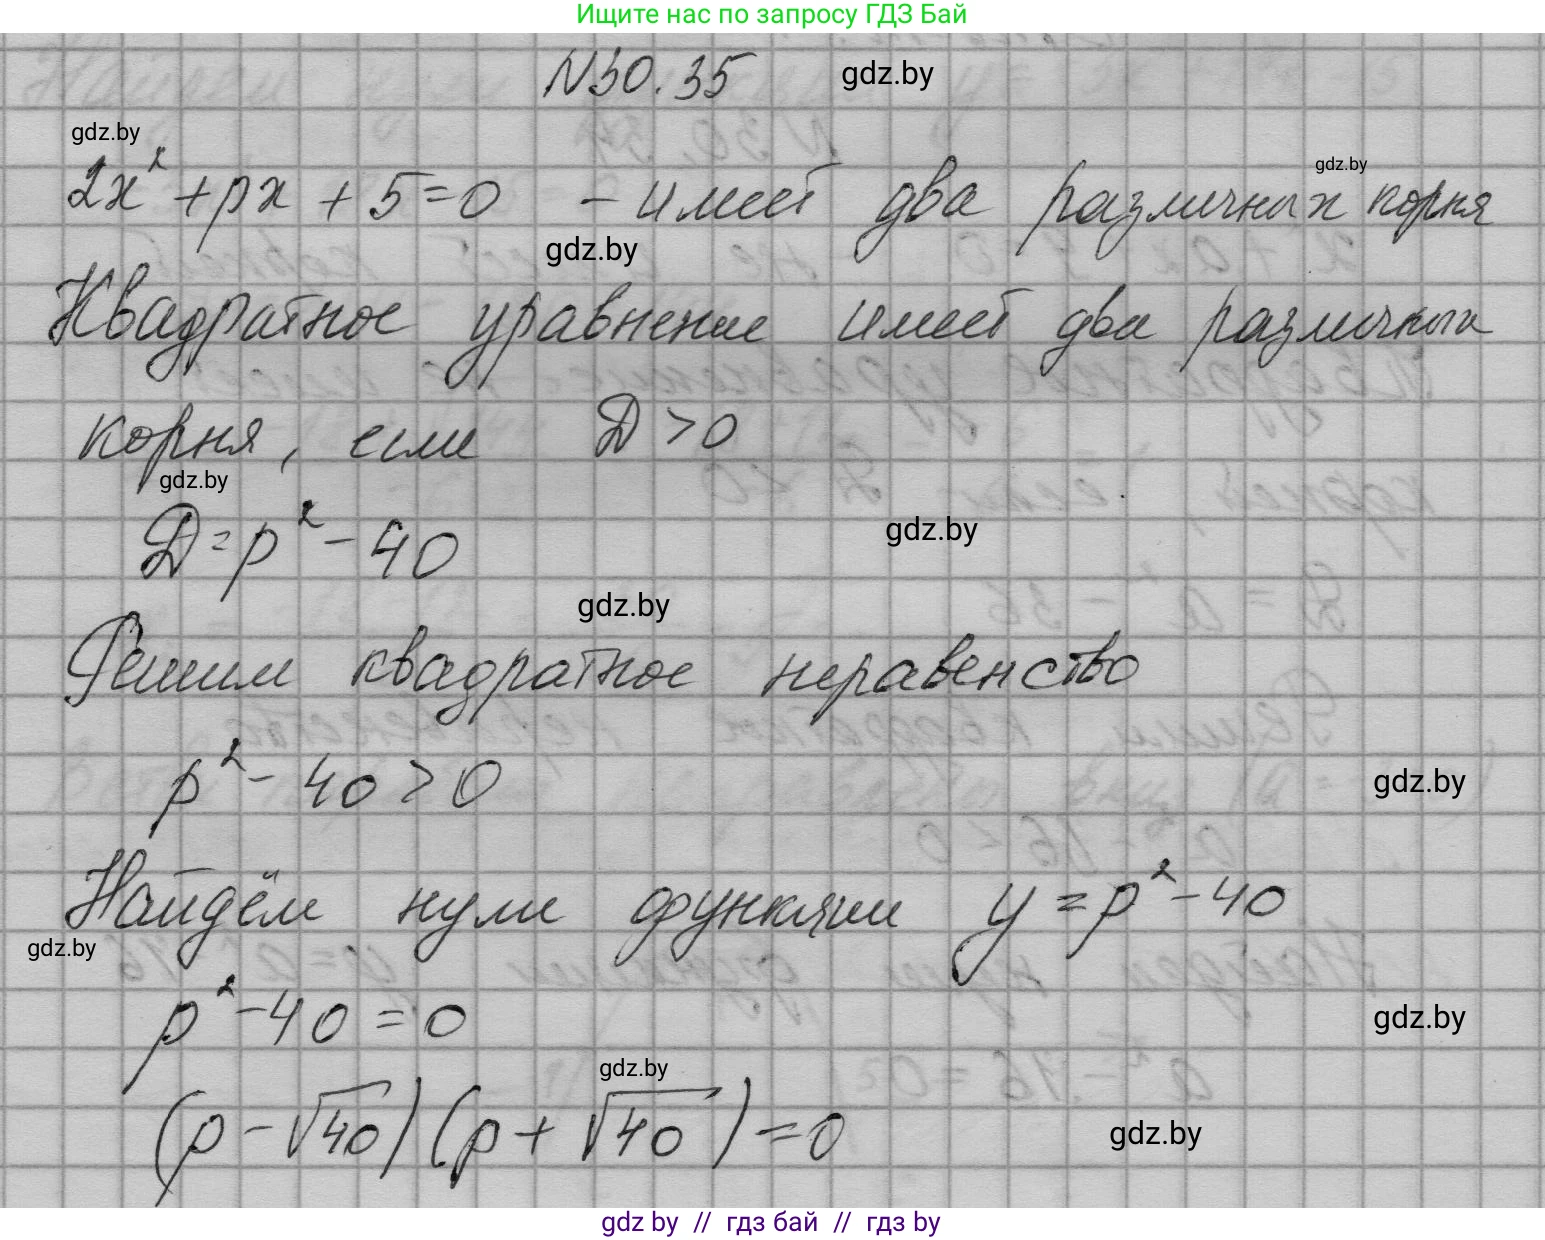 Ищите нас по запросу ГДЗ Бай
N30.35 gdz.by
gdz.by
gdz.by
2x² + px + 5 = 0 - имеет два различных корня
gdz.by
Квадратное уравнение имеет два различных
корня, если D > 0
gdz.by
D = p² - 40 gdz.by
gdz.by
Решим квадратное неравенство
p² - 40 > 0 gdz.by
Найдём нули функции y = p² - 40
gdz.by
p² - 40 = 0 gdz.by
gdz.by
(p - √40)(p + √40) = 0 gdz.by
gdz by // гдз бай // гдз by